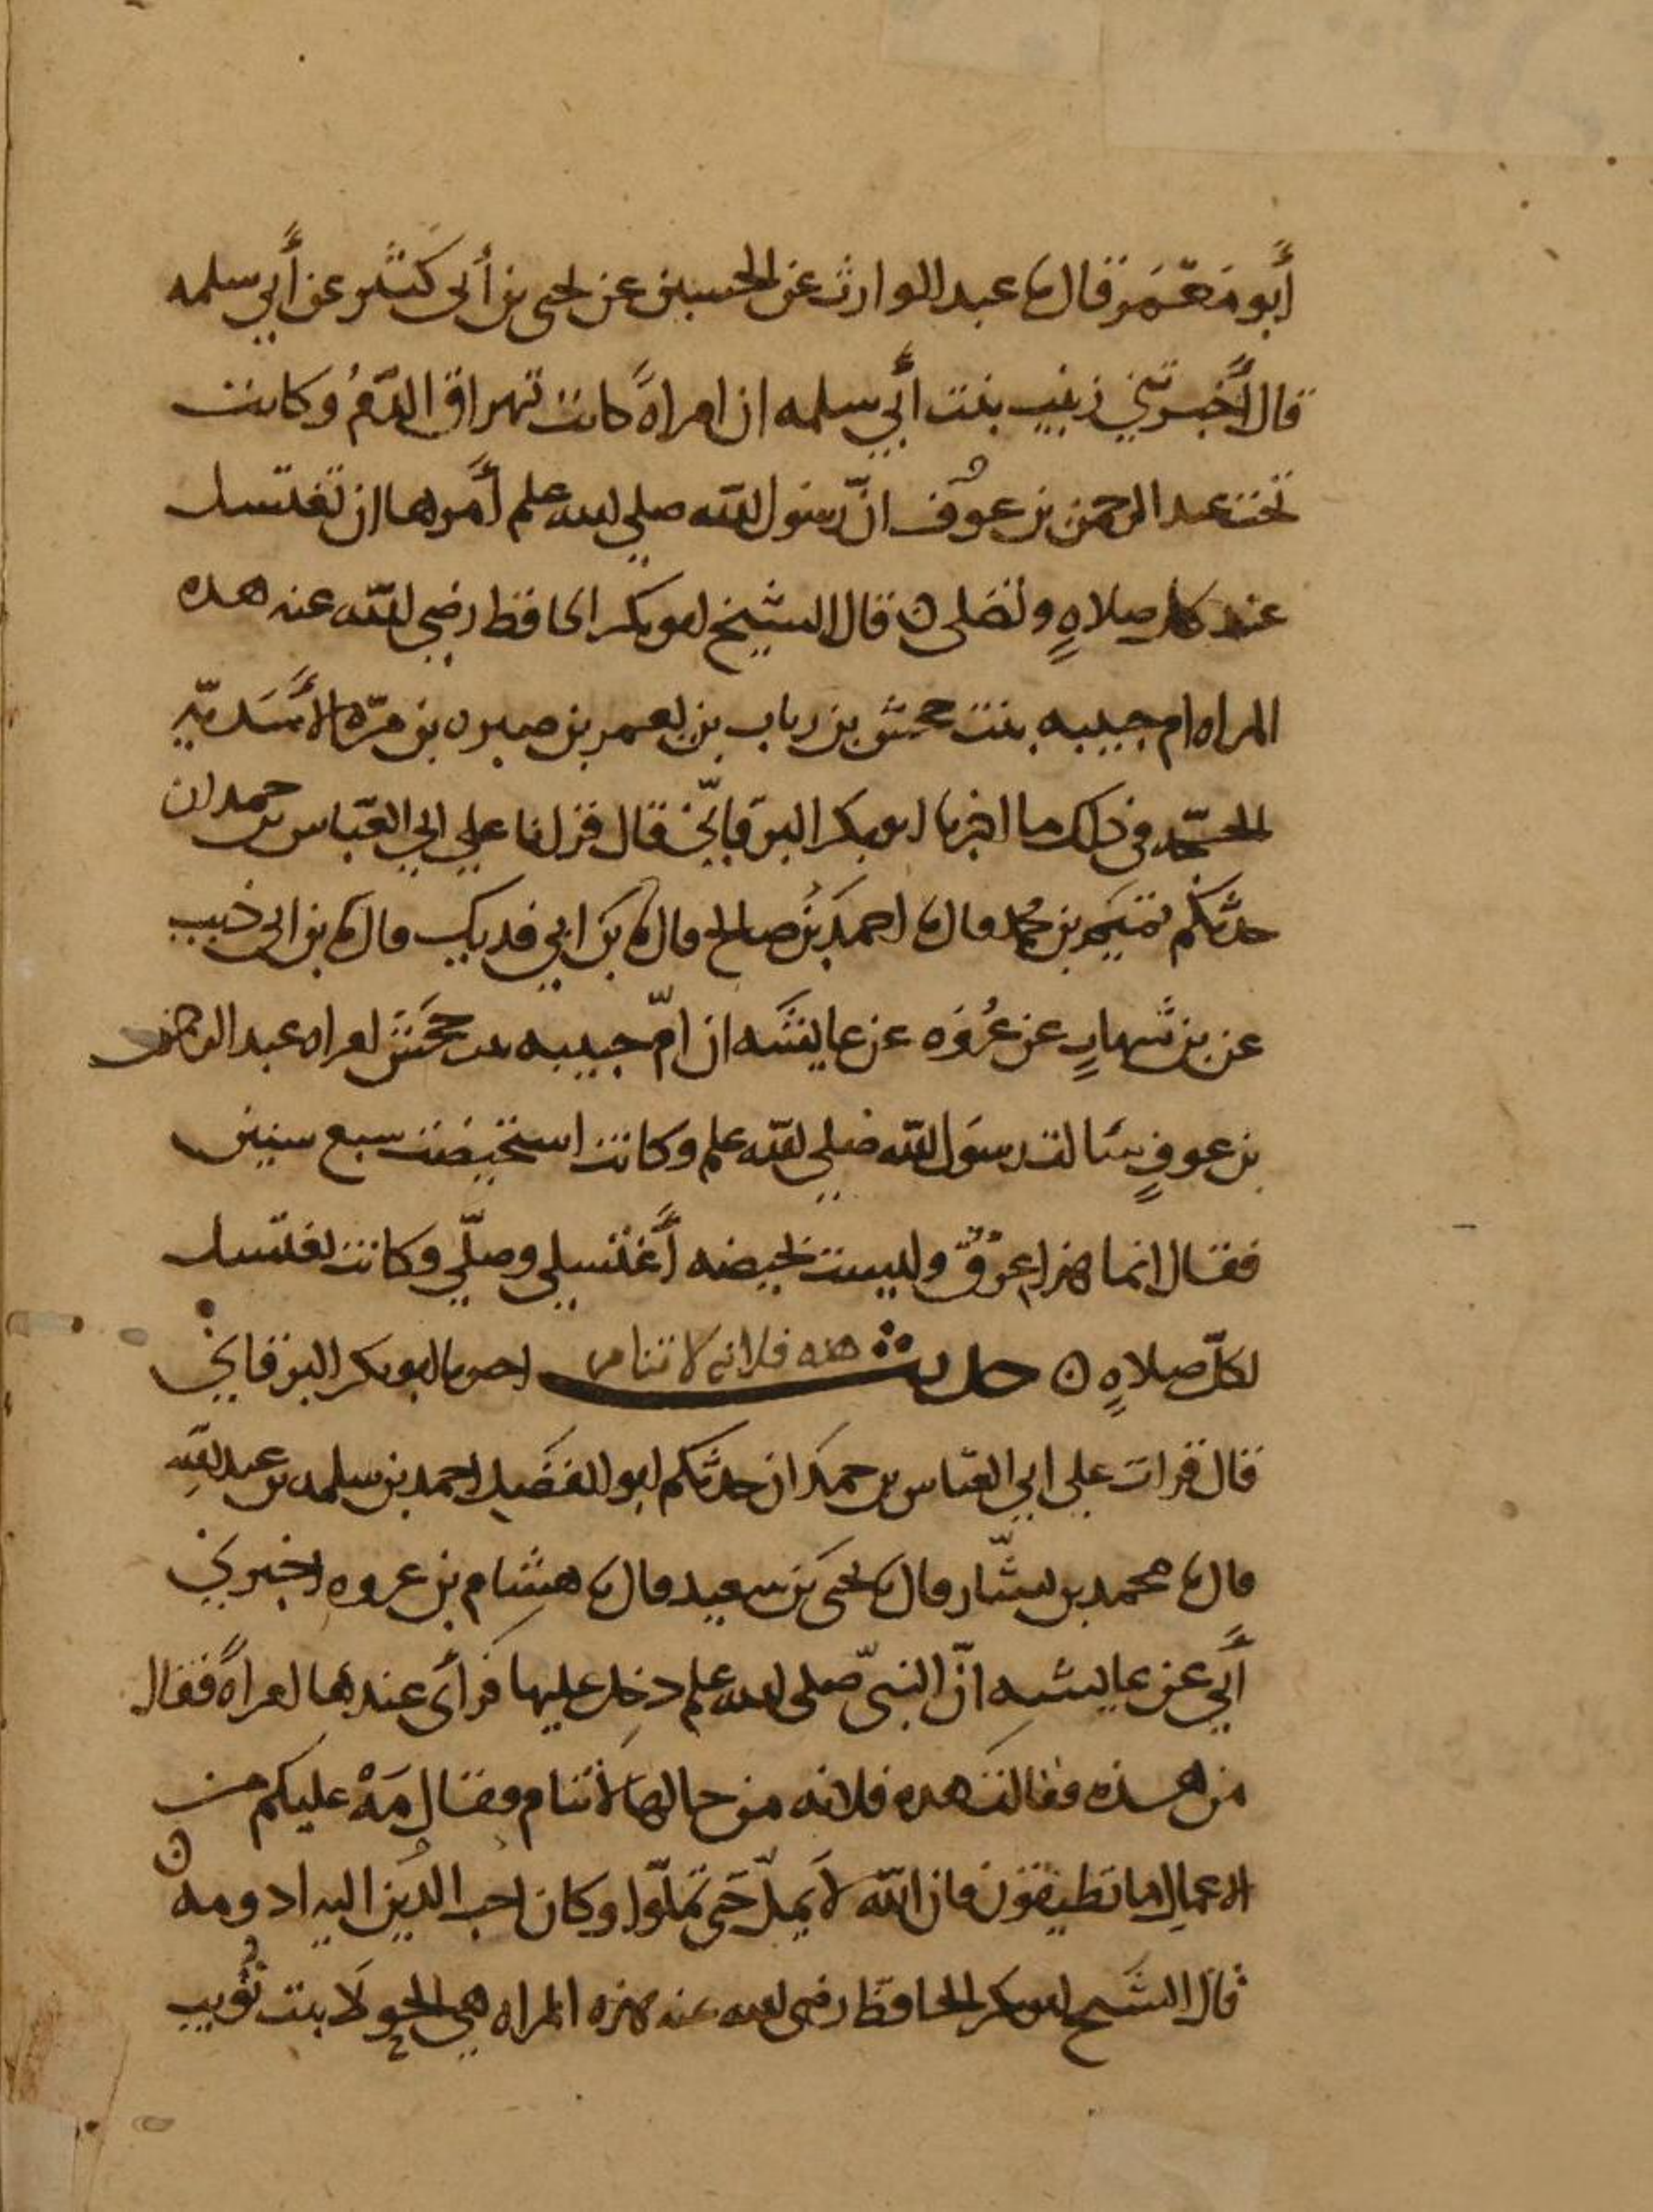 أبو معمر قال نا عبد الوارث عن الحسين عن يحيى بن أبي كثير عن أبي سلمه
قال أخبرتني زينب بنت أبي سلمه ان امراةً كانت تهراق الدّمُ وكانت
تحت عبد الرحمن بن عوف انّ رسول الله صلي الله علم أمرها ان تغتسل
عند كل صلاهٍ وتصلى ن قال الشيخ ابو بكر الحافظ رضي الله عنه هذه
المراه ام حبيبه بنت جحش بن رياب بن يعمر بن صبره بن مرّه الأسَديّه
الحجّه في ذلك ما اخبرنا ابو بكر البرقانيّ قال قرانا علي ابي العبّاس بن حمدان
حدثكم تميم بن محمد قال نا احمد بن صالح قال نا بن ابي فديك قال نا بن ابي ذيب
عن بن شهابٍ عن عُروَه عن عايشَه ان امّ حبيبه بنت جَحَش امراه عبد الرحمن
بن عوفٍ سَالت رسوَل الله صَلي الله علم وكانت استحيضت سبع سنين
فقال انما هذا عرقٌ وليست بحيضه أغتسلي وصلّي وكانت تغتسل
لكلّ صلاهٍ ن حديث هذه فلانه لا تنام اخبرنا ابو بكر البرقاني
قال قرات علي ابي العبّاس بن حمدَان حدثكم ابو الفَضَل احمد بن سلمه بن عبد الله
قال نا محمد بن بشّار قال نا يحيى بن سعيد قال نا هشام بن عروه اخبرني
أبي عن عايشه انّ النبيّ صلى الله علم دخل عليها فرأى عندها امراةً فقال
من هذه فقالت هذه فلانه من حالها لا تنام فقال مَهْ عليكم من
الاعمال ما تطيقون فان الله لا يملّ حَتى تملّوا وكان احب الدّين اليه ادومه ن
قال الشَيخ ابو بكر الحافظ رضى الله عنه هذه المراه هي الحولَا بنت تُوَيب